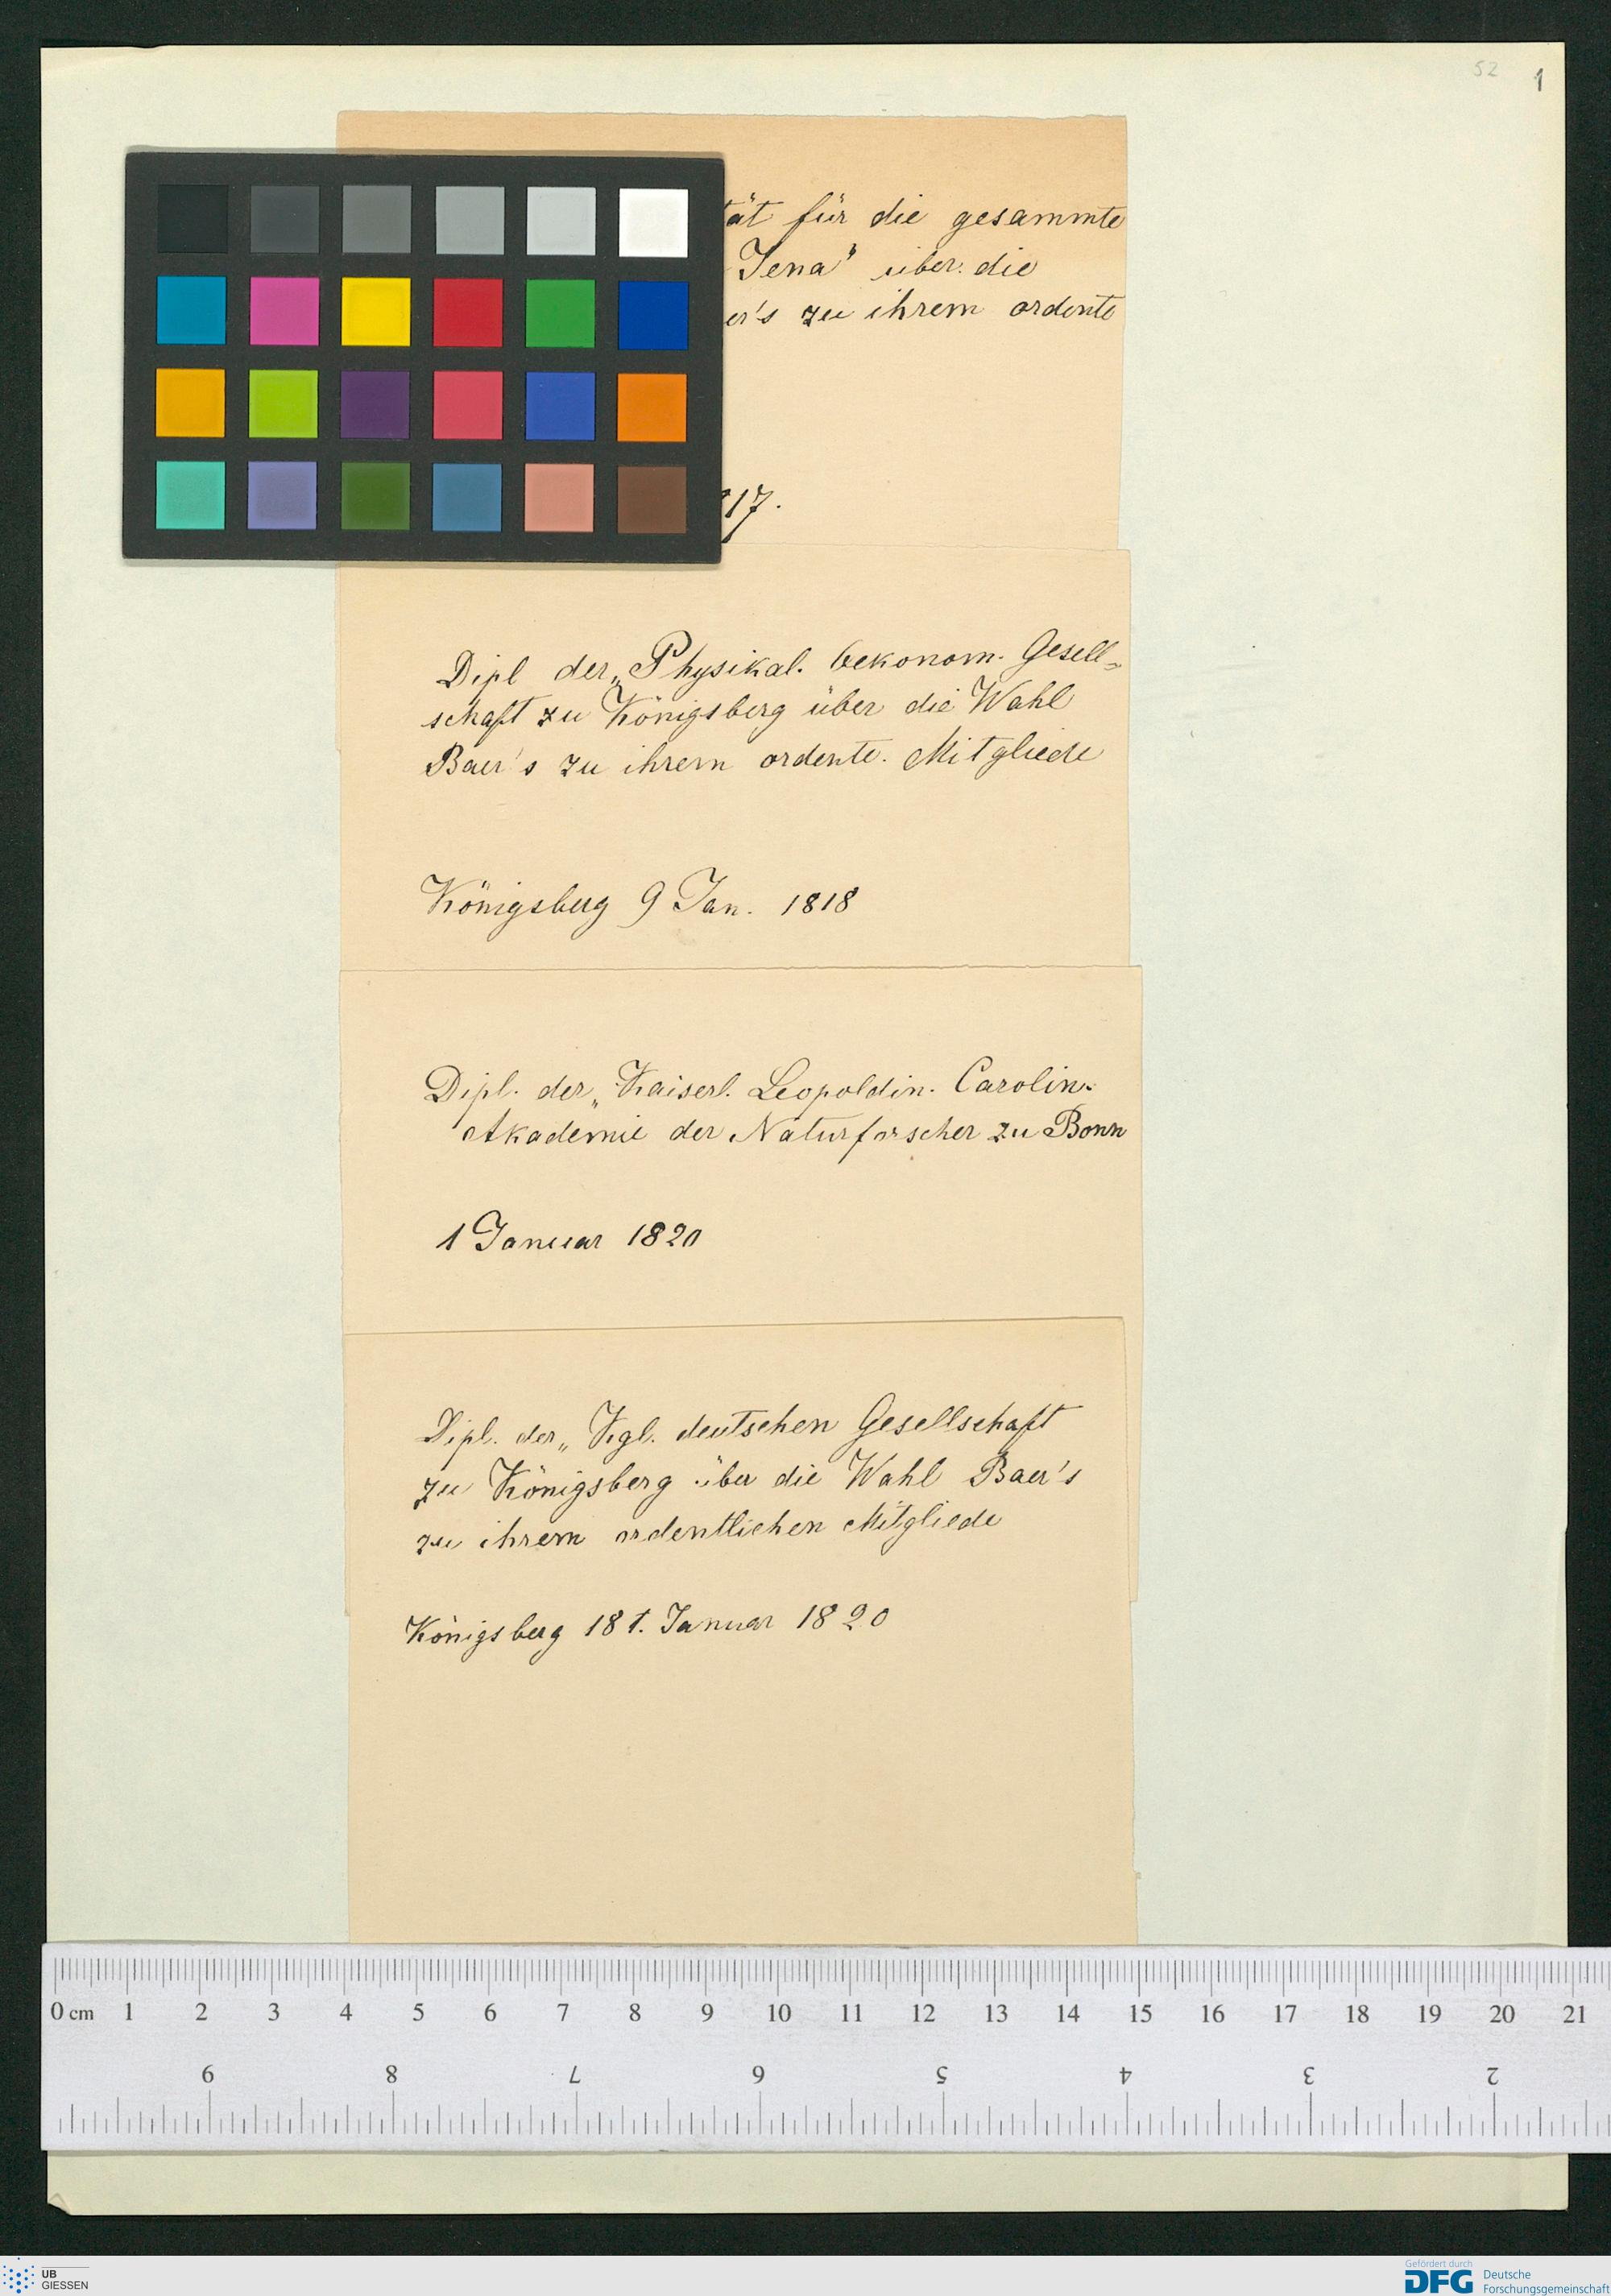 52 1
tät für die gesammte
Jena" über die
er's zu ihrem ordentl
17.
Dipl der „Physikal. Oekonom. Gesell=
schaft zu Königsberg über die Wahl
Baer's zu ihrem ordentl. Mitgliede
Königsberg 9 Jan. 1818
Dipl. der „Kaiserl. Leopoldin. Carolin.
Akademie der Naturforscher zu Bonn
1 Januar 1820
Dipl. der „Kgl. deutschen Gesellschaft
zu Königsberg über die Wahl Baer's
zu ihrem ordentlichen Mitgliede
Königsberg 18t. Januar 1820
0 cm 1 2 3 4 5 6 7 8 9 10 11 12 13 14 15 16 17 18 19 20 21
9 8 7 6 5 4 3 2
UB
GIESSEN
Gefördert durch
DFG Deutsche
Forschungsgemeinschaft